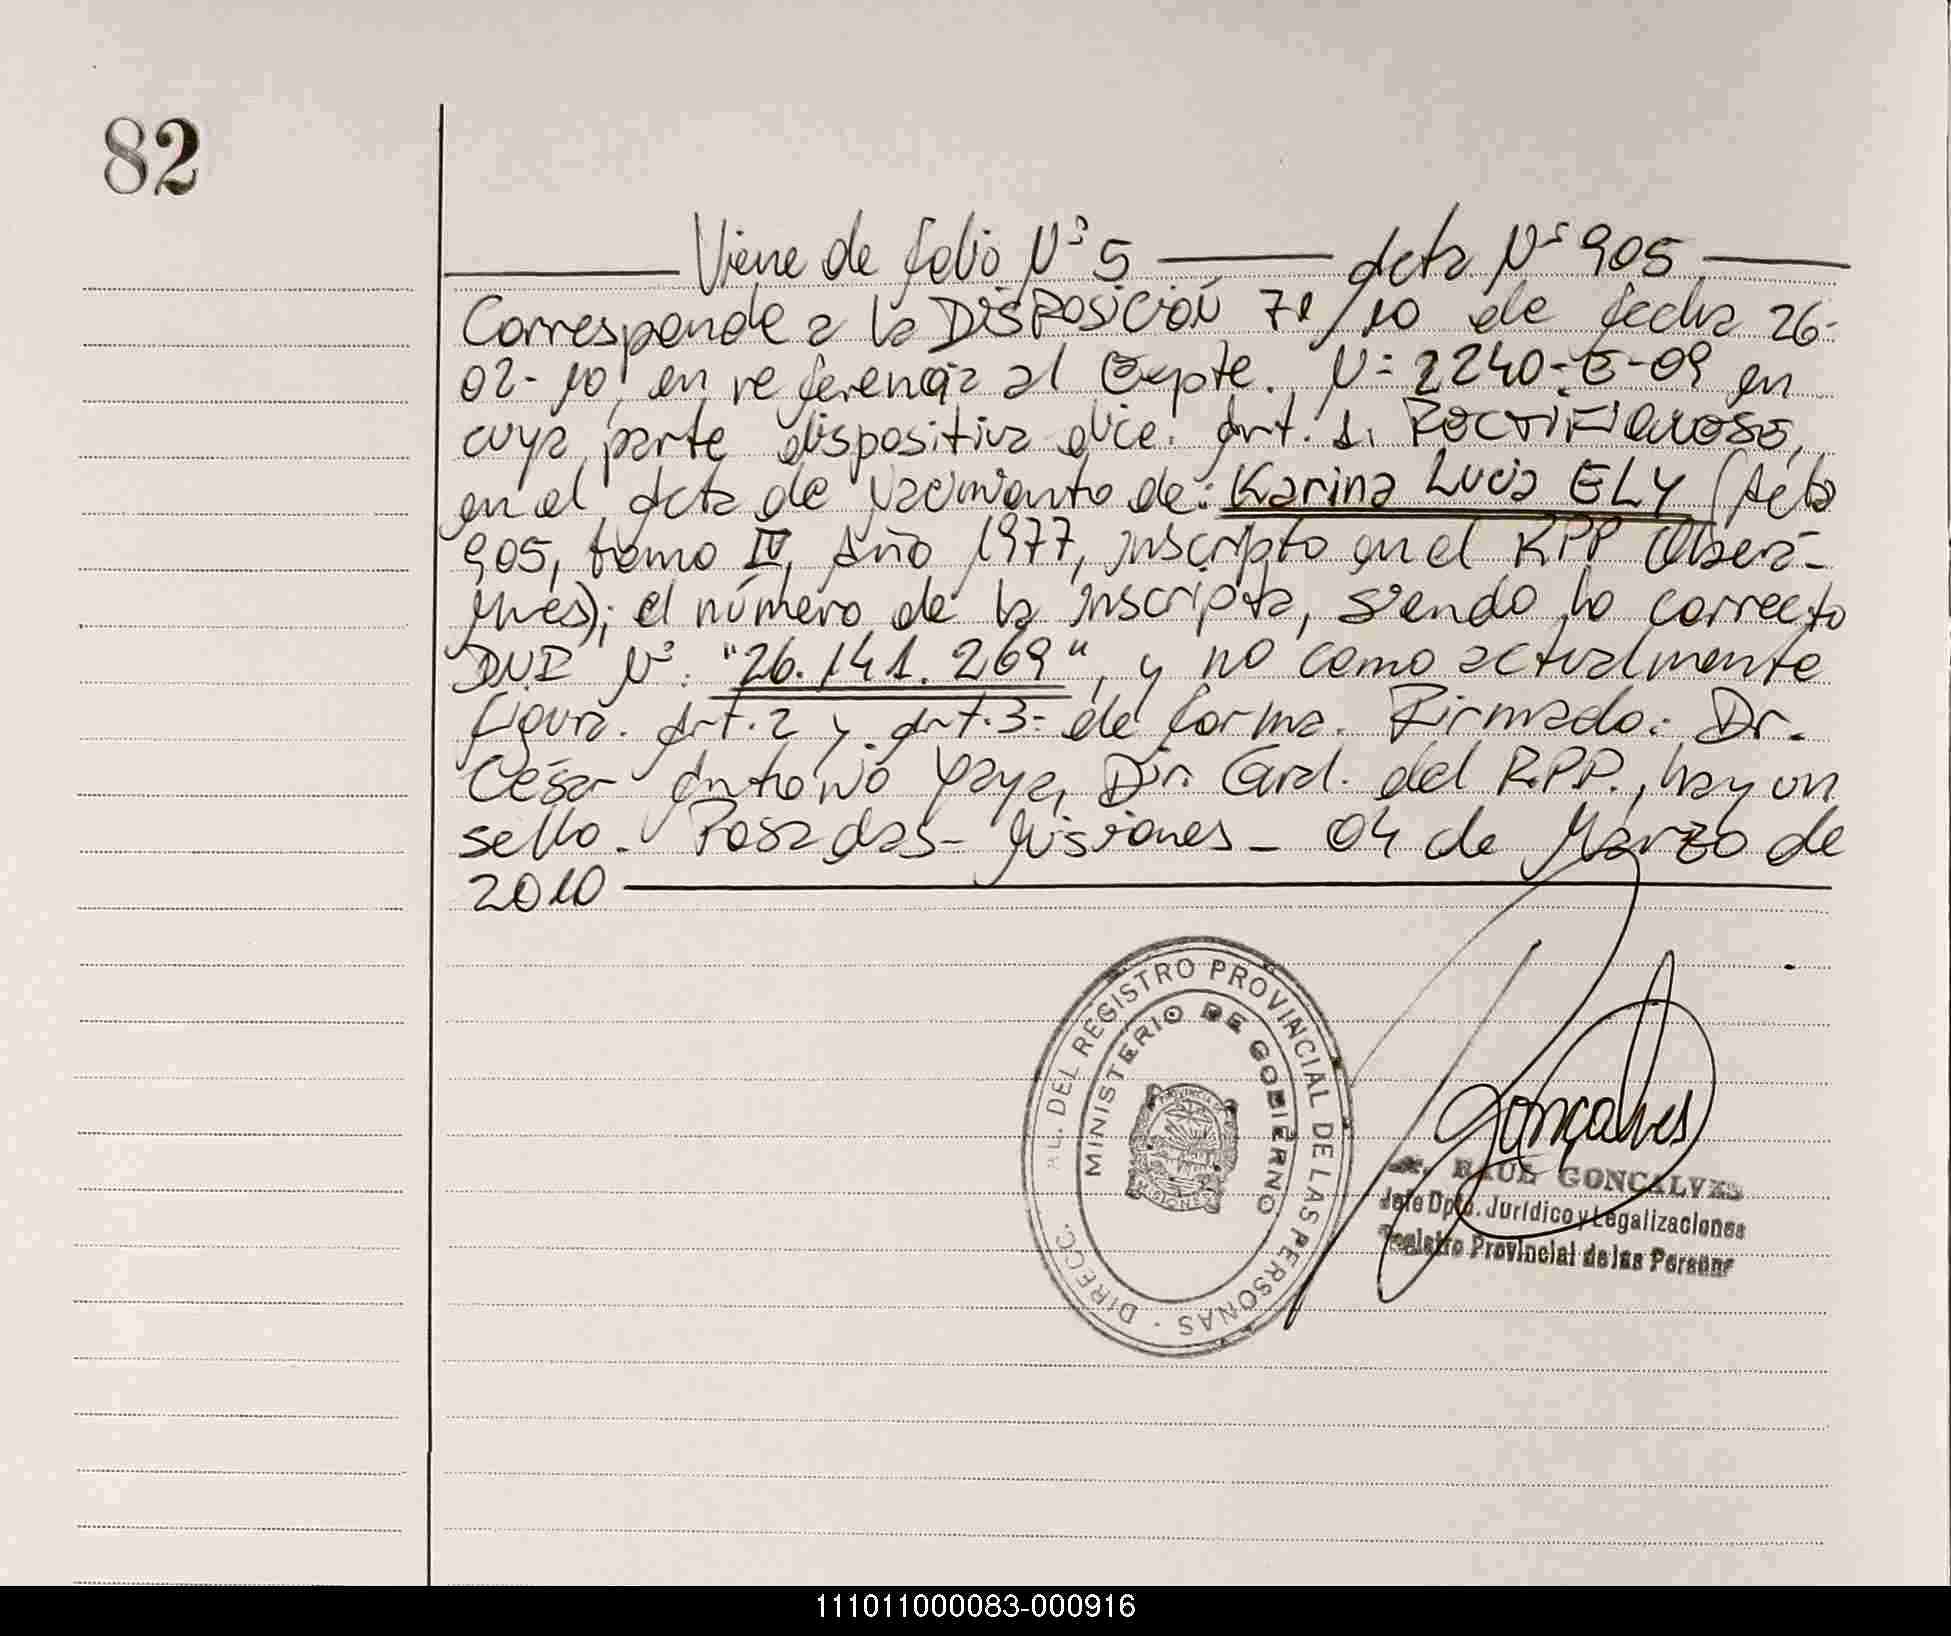 82
Viene de folio Nº 5 — Acta Nº 905 —
Corresponde a la DISPOSICIÓN 71/10 de fecha 26-
02-10, en referencia al Expte. Nº 2240-E-09 en
cuya parte dispositiva dice. Art. 1. RECTIFIQUESE,
en el Acta de Nacimiento de: Karina Lucia ELY (Acta
905, tomo IV, Año 1977, inscripto en el RPP Oberá-
Mnes); el número de la inscripta, siendo lo correcto
DNI Nº. "26.141.269", y no como actualmente
figura. Art. 2 y Art. 3- de forma. Firmado: Dr.
César Antonio Yaya, Dir. Gral. del R.P.P., hay un
sello. Posadas- Misiones - 04 de Marzo de
2010
DIRECC. AL. DEL REGISTRO PROVINCIAL DE LAS PERSONAS ·
MINISTERIO DE GOBIERNO
PROVINCIA DE
MISIONES
Gonçalves
RAUL GONCALVES
Jefe Dpto. Jurídico y Legalizaciones
Registro Provincial de las Personas
111011000083-000916